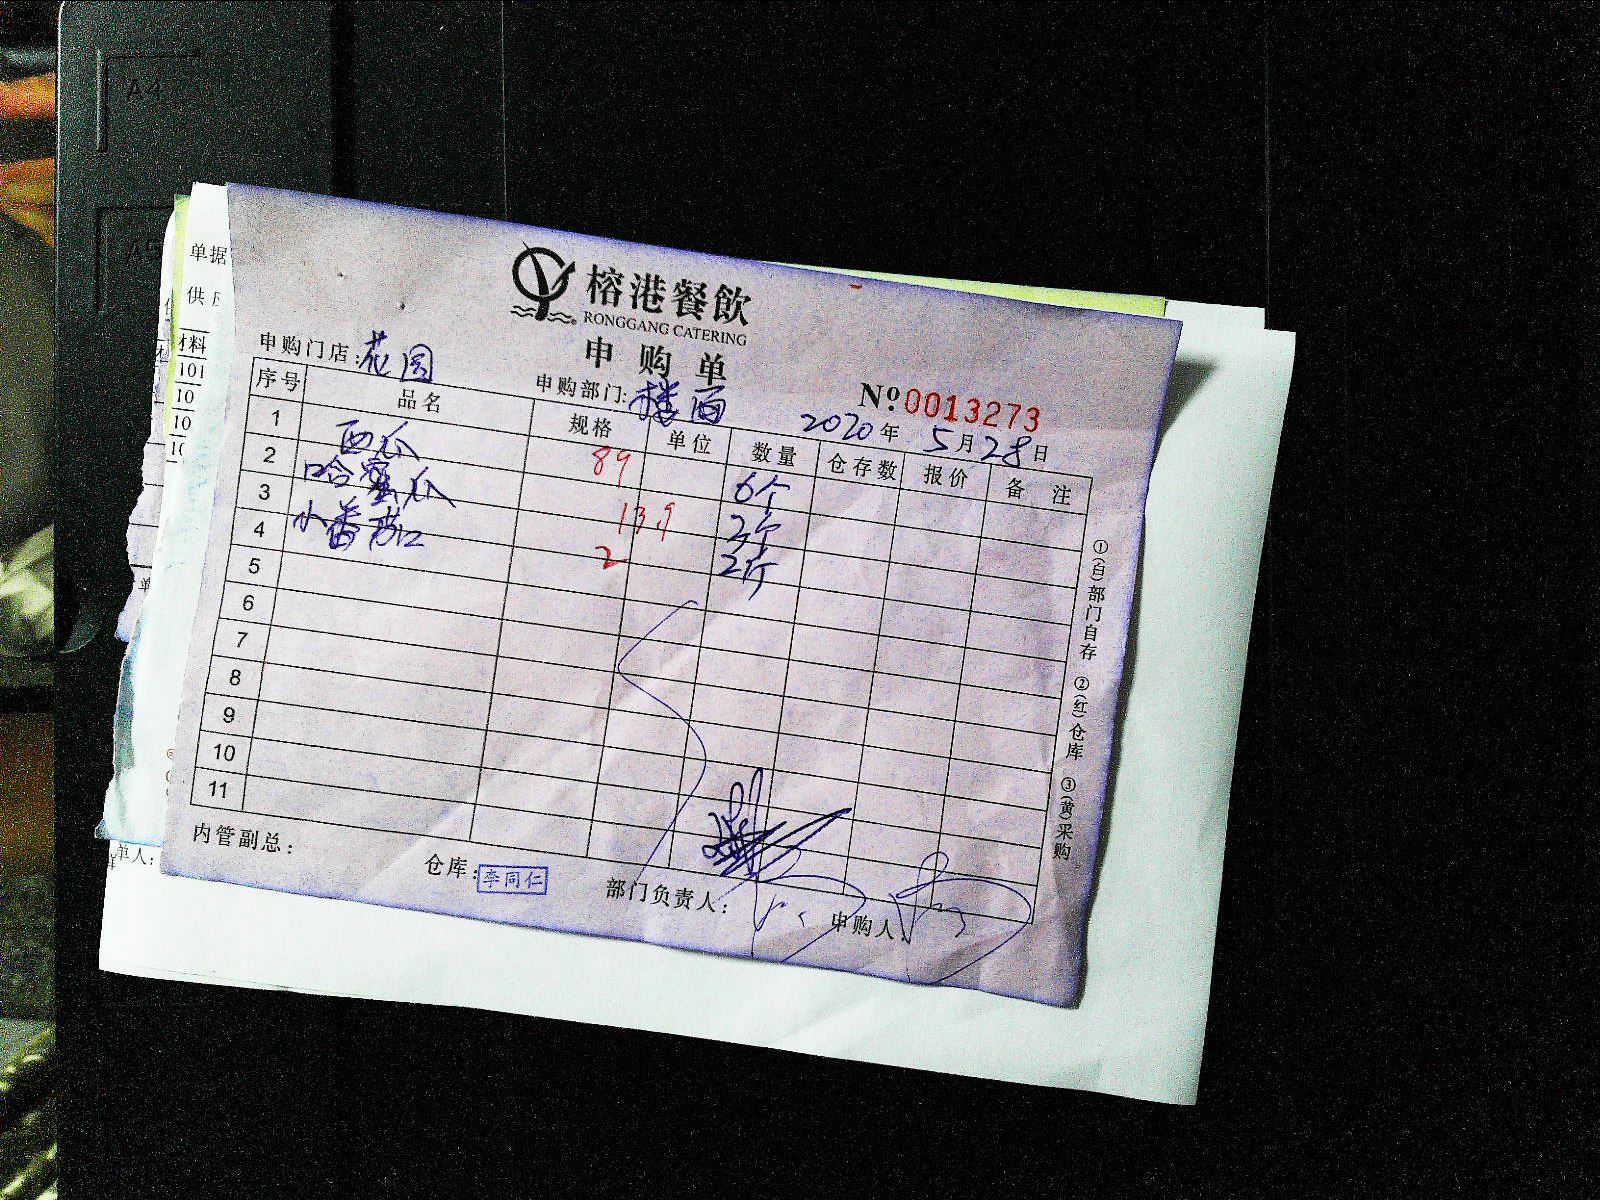 A4
A5
单据
供
材料
101
10
10
10
单
单人:
榕港餐飲
RONGGANG CATERING
申购单
申购门店:花园
申购部门:楼面
№0013273
2020年5月28日
序号 品名 规格 单位 数量 仓存数 报价 备注
1 西瓜 89 6个
2 哈蜜瓜 13.9 2个
3 小番茄 2 2斤
4
5
6
7
8
9
10
11
①(白)部门自存 ②(红)仓库 ③(黄)采购
内管副总:
仓库:李同仁
部门负责人:
申购人: